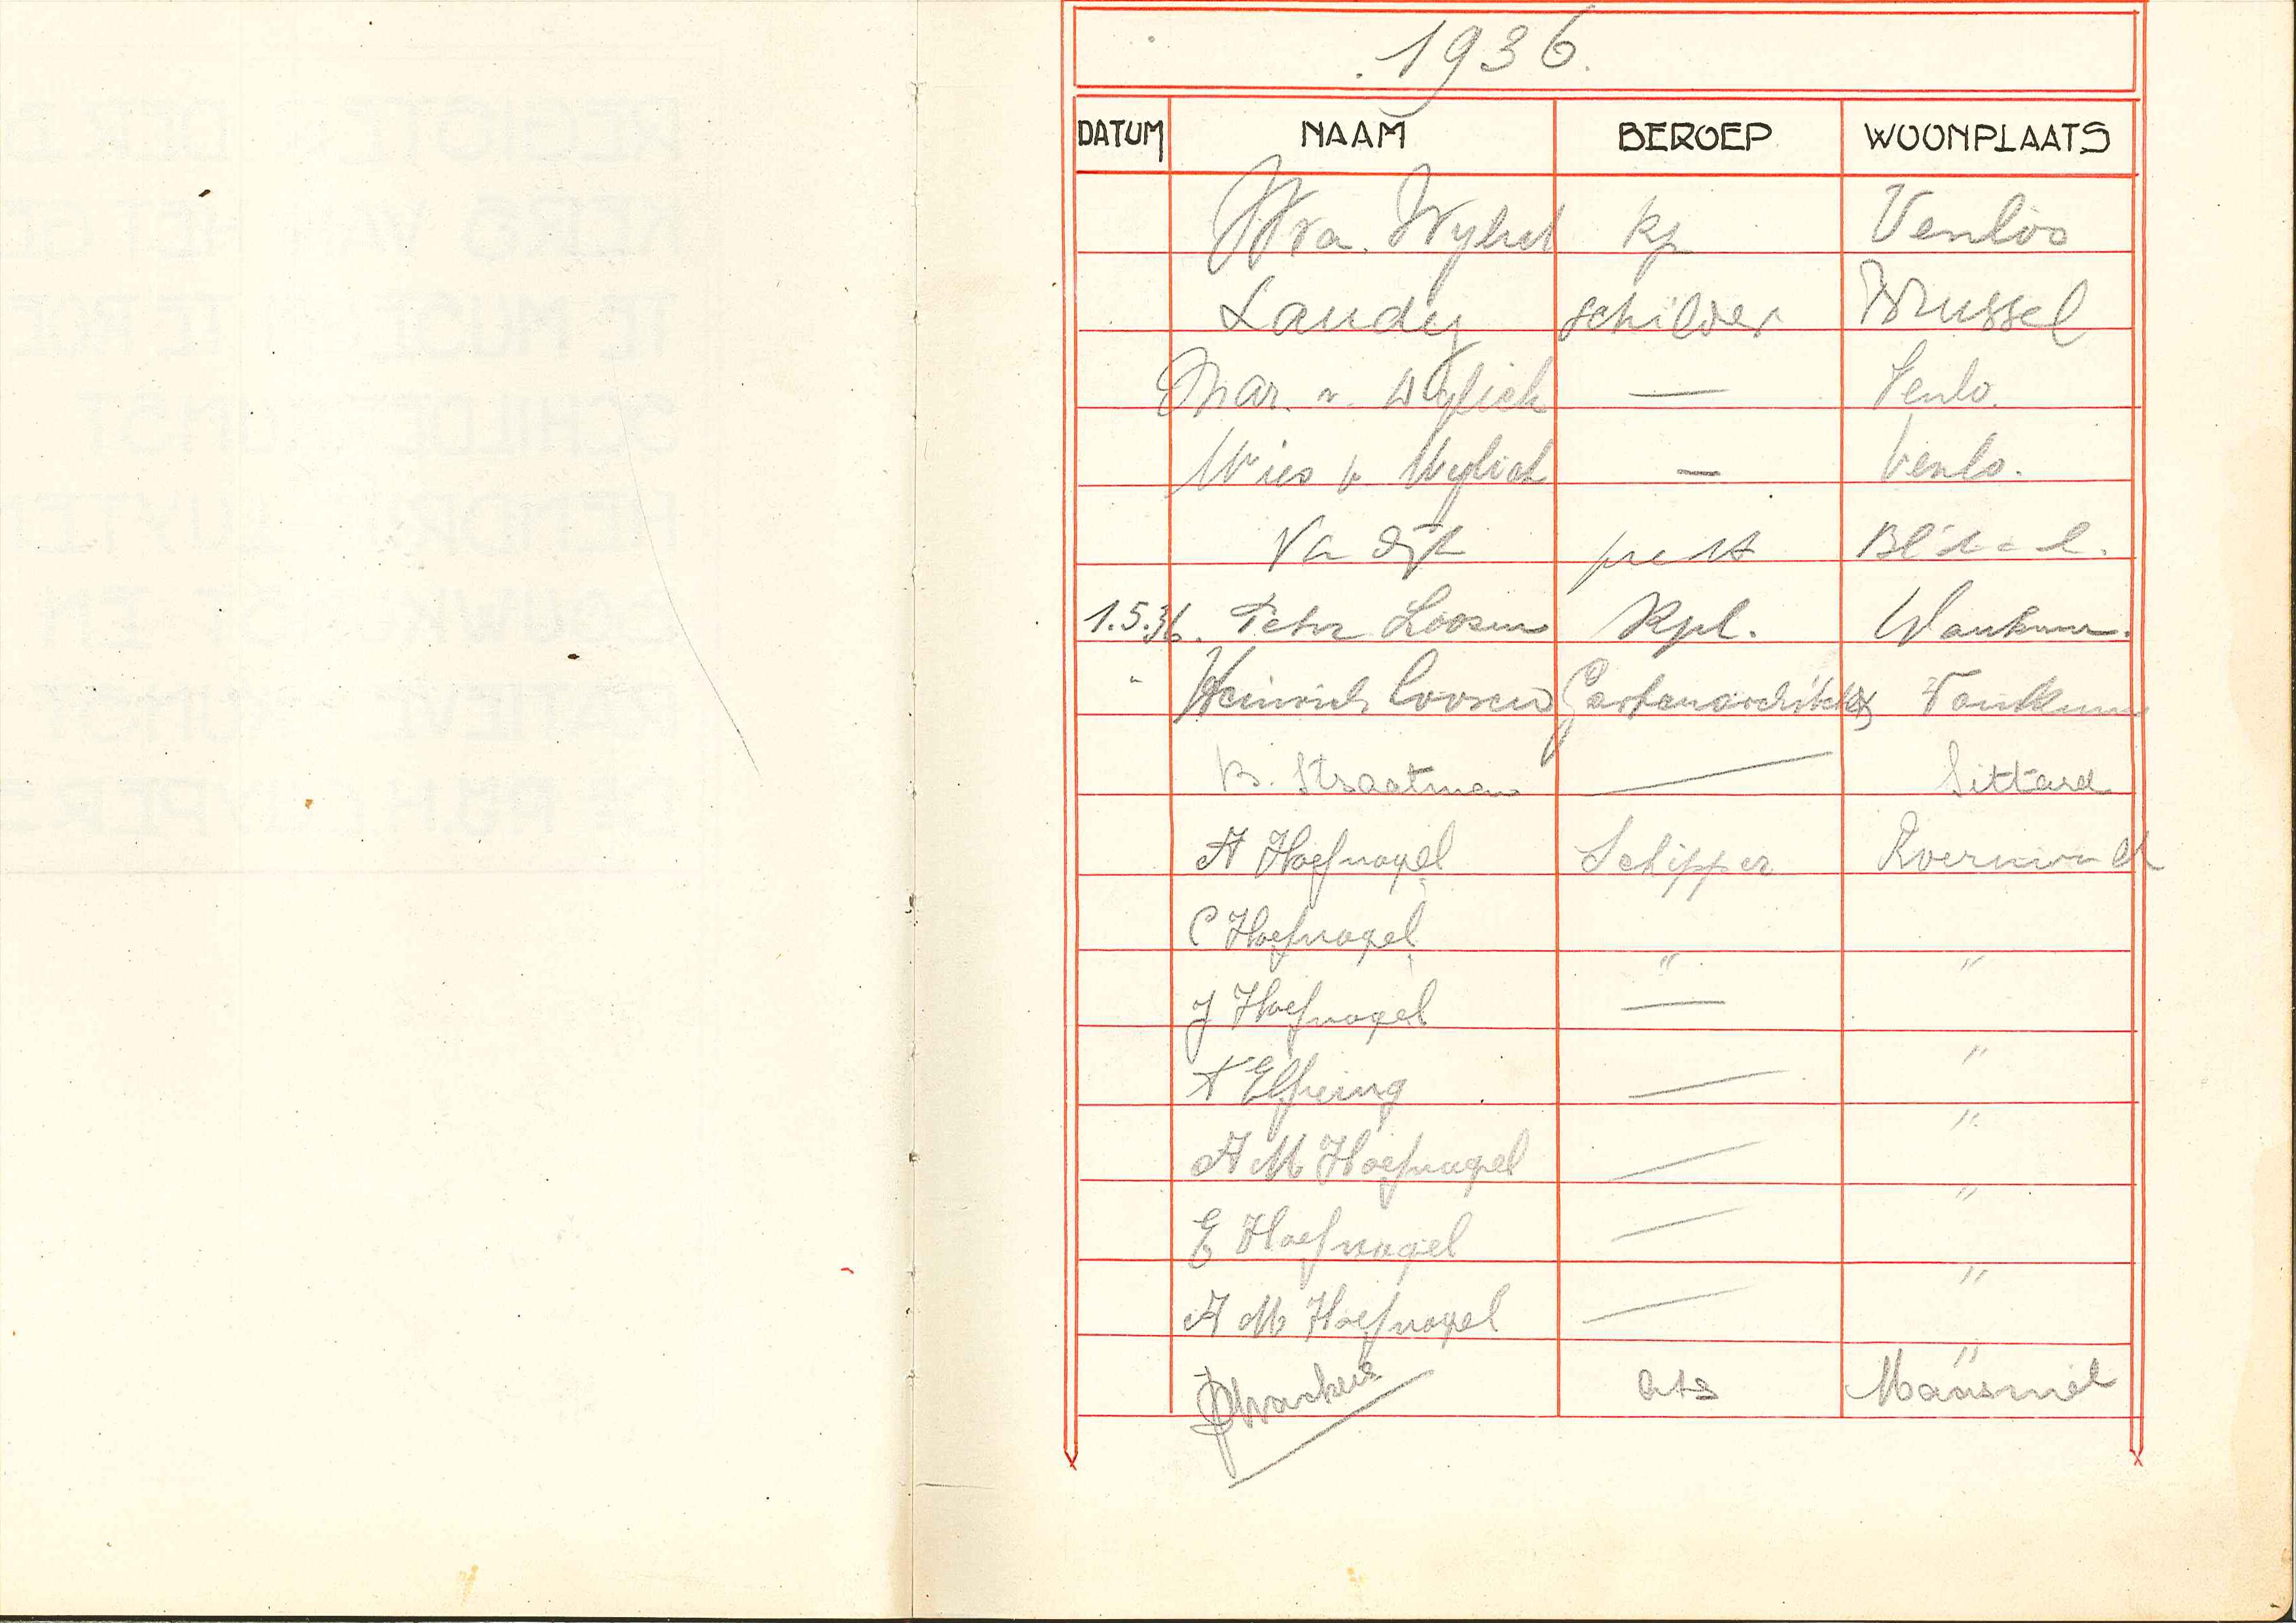 1936.
DATUM NAAM BEROEP WOONPLAATS
Wylick kp Venloo
Laudy schilder Brussel
Mar. v. Wylick — Venlo.
Wies v Wylick — Venlo.
Va Dijk
1.5.36. Peter Loosen Kpl. Wankum.
" Heinrich Loosen Gartenarchitekt Wankum
B. Straatman — Sittard
A Hoefnagel Schipper Roermond
C Hoefnagel " "
J Hoefnagel — "
A Elfering — "
A M Hoefnagel — "
E Hoefnagel — "
A M Hoefnagel — "
arts Maasniel